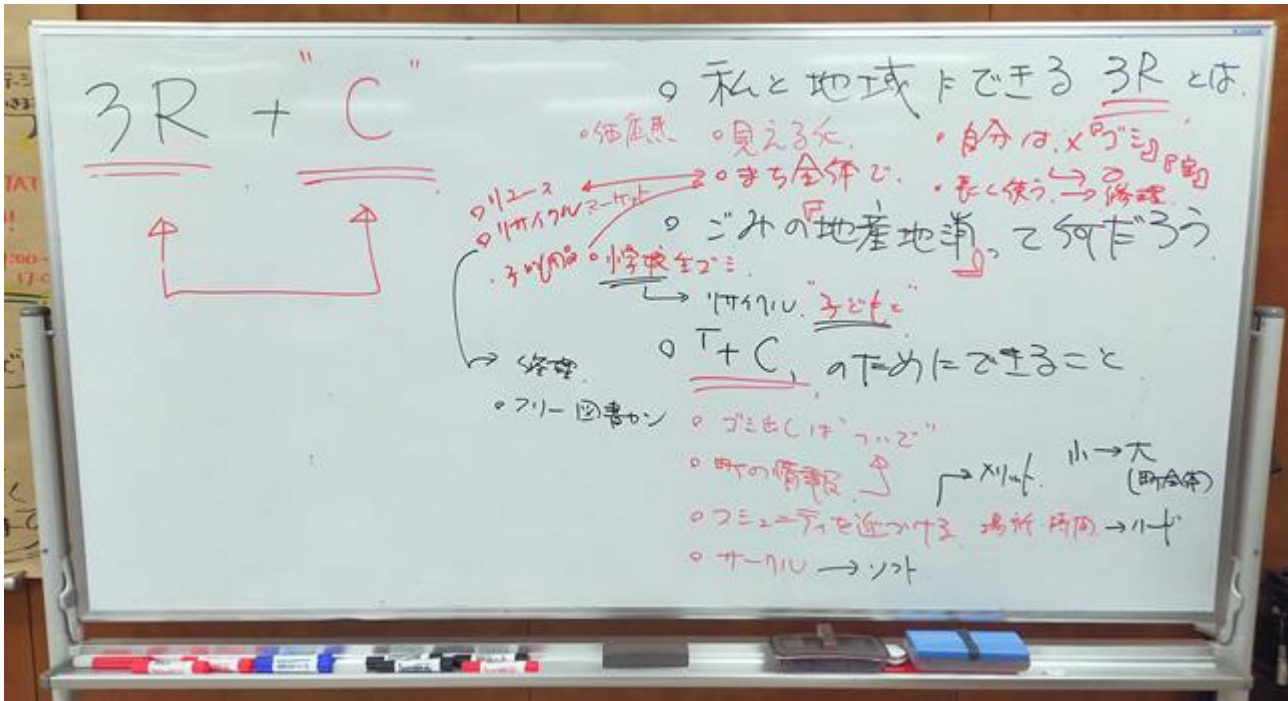 3R + "C"
○ 私と地域にできる 3R とは.
○価値感 ○見える化.
・自分は、×『ゴミ』『宝』
○まち全体で.
・長く使う. → 修理.
○リユース
○リサイクルマーケット
○ ごみの『地産地消』って何だろう
○小学校 生ゴミ.
→ リサイクル. "子どもと"
○ 「+C」のためにできること
→ 修理.
○フリー図書カン
○ ゴミ出しは"ついで"
○ 町の情報
→ メリット.
小→大
(町全体)
○ コミュニティを近づける. 場所 時間 → ハード
○ サークル → ソフト